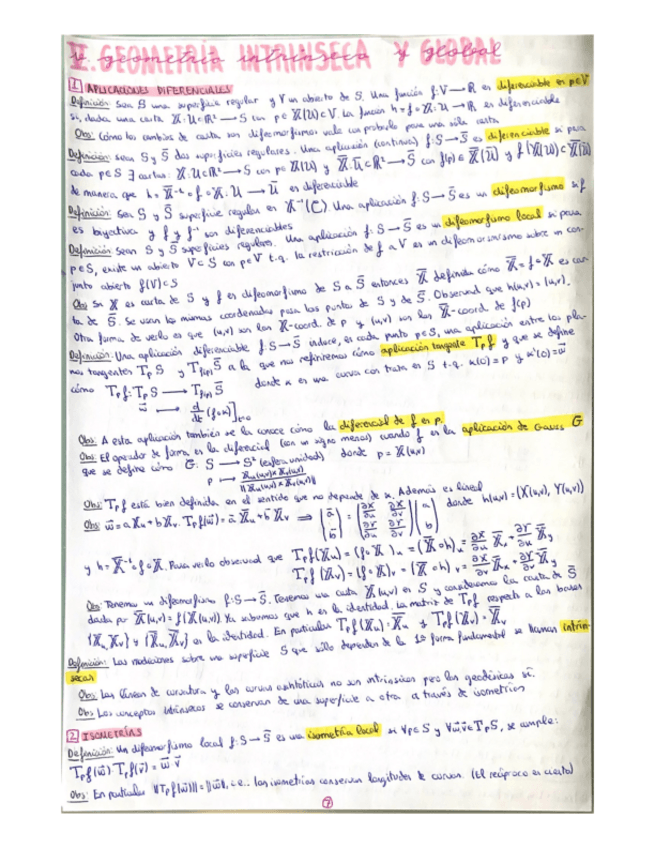 V. GEOMETRÍA INTRINSECA Y GLOBAL
1 APLICACIONES DIFERENCIALES
Definición: Sean S una superficie regular y V un abierto de S. Una función f: V → ℝ es diferenciable en p∈V
si, dada una carta 𝕏: U⊂ℝ² → S con p∈𝕏(U)⊂V. La función h = f∘𝕏: U → ℝ es diferenciable
Obs: Cómo los cambios de carta son difeomorfismos vale con probarlo para una sola carta
Definición: Sean S y S̄ dos superficies regulares. Una aplicación (continua) f: S → S̄ es diferenciable si para
cada p∈S ∃ cartas: 𝕏: U⊂ℝ² → S con p∈𝕏(U) y 𝕏̄: Ū⊂ℝ² → S̄ con f(p)∈𝕏̄(Ū) y f(𝕏(U))⊂𝕏̄(Ū)
de manera que h = 𝕏̄⁻¹∘f∘𝕏: U → Ū es diferenciable
Definición: Sea S y S̄ superficie regular en Una aplicación f: S → S̄ es un difeomorfismo si f
es biyectiva y f y f⁻¹ son diferenciables
Definición: Sean S y S̄ superficies regulares. Una aplicación f: S → S̄ es un difeomorfismo local si para
p∈S, existe un abierto V⊂S con p∈V t.q. la restricción de f a V es un difeomorfismo sobre un con-
junto abierto f(V)⊂S̄
Obs Si 𝕏 es carta de S y f es difeomorfismo de S a S̄ entonces 𝕏̄ definida cómo 𝕏̄ = f∘𝕏 es car-
ta de S̄. Se usan las mismas coordenadas para los puntos de S y de S̄. Observad que h(u,v) = (u,v).
Otra forma de verlo es que (u,v) son las 𝕏-coord. de p y (u,v) son las 𝕏̄-coord. de f(p)
Definición: Una aplicación diferenciable f: S → S̄ induce, en cada punto p∈S, una aplicación entre los pla-
nos tangentes TpS y Tf(p)S̄ a la que nos referiremos cómo aplicación tangente Tpf y que se define
cómo Tpf: TpS → Tf(p)S̄ donde α es una curva con traza en S t.q. α(0) = p y α'(0) = w⃗
w⃗ ⟼ d/dt (f∘α)]t=0
Obs: A esta aplicación también se la conoce cómo la diferencial de f en p.
Obs: El operador de forma es la diferencial (con un signo menos) cuando f es la aplicación de Gauss G
que se define cómo G: S → S² (esfera unidad) donde p = 𝕏(u,v)
p ⟼ 𝕏u(u,v)×𝕏v(u,v) / ||𝕏u(u,v)×𝕏v(u,v)||
Obs: Tpf está bien definida en el sentido que no depende de α. Además es lineal
Obs: w⃗ = a𝕏u + b𝕏v. Tpf(w⃗) = ā𝕏̄u + b̄𝕏̄v ⟹ (ā b̄) = (∂X/∂u ∂X/∂v ∂Y/∂u ∂Y/∂v)(a b) donde h(u,v) = (X(u,v), Y(u,v))
y h = 𝕏̄⁻¹∘f∘𝕏. Para verlo observad que Tpf(𝕏u) = (f∘𝕏)u = (𝕏̄∘h)u = ∂X/∂u 𝕏̄x + ∂Y/∂u 𝕏̄y
Tpf(𝕏v) = (f∘𝕏)v = (𝕏̄∘h)v = ∂X/∂v 𝕏̄x + ∂Y/∂v 𝕏̄y
Obs: Tenemos un difeomorfismo f: S → S̄. Tenemos una carta 𝕏(u,v) en S y consideremos la carta de S̄
dada por 𝕏̄(u,v) = f(𝕏(u,v)). Ya sabemos que h es la identidad. La matriz de Tpf respecto a las bases
{𝕏u, 𝕏v} y {𝕏̄u, 𝕏̄v} es la identidad. En particular Tpf(𝕏u) = 𝕏̄u y Tpf(𝕏v) = 𝕏̄v
Definición: Las nociones sobre una superficie S que sólo dependen de la 1ª forma fundamental se llaman intrín-
secas
Obs: Las líneas de curvatura y las curvas asintóticas no son intrínsecas pero las geodésicas sí.
Obs: Los conceptos intrínsecos se conservan de una superficie a otra a través de isometrías
2 ISOMETRÍAS
Definición: Un difeomorfismo local f: S → S̄ es una isometría local si ∀p∈S y ∀w⃗,v⃗∈TpS, se cumple:
Tpf(w⃗)·Tpf(v⃗) = w⃗·v⃗
Obs: En particular ||Tpf(w⃗)|| = ||w⃗||, i.e.: las isometrías conservan longitudes de curvas. (el recíproco es cierto)
7